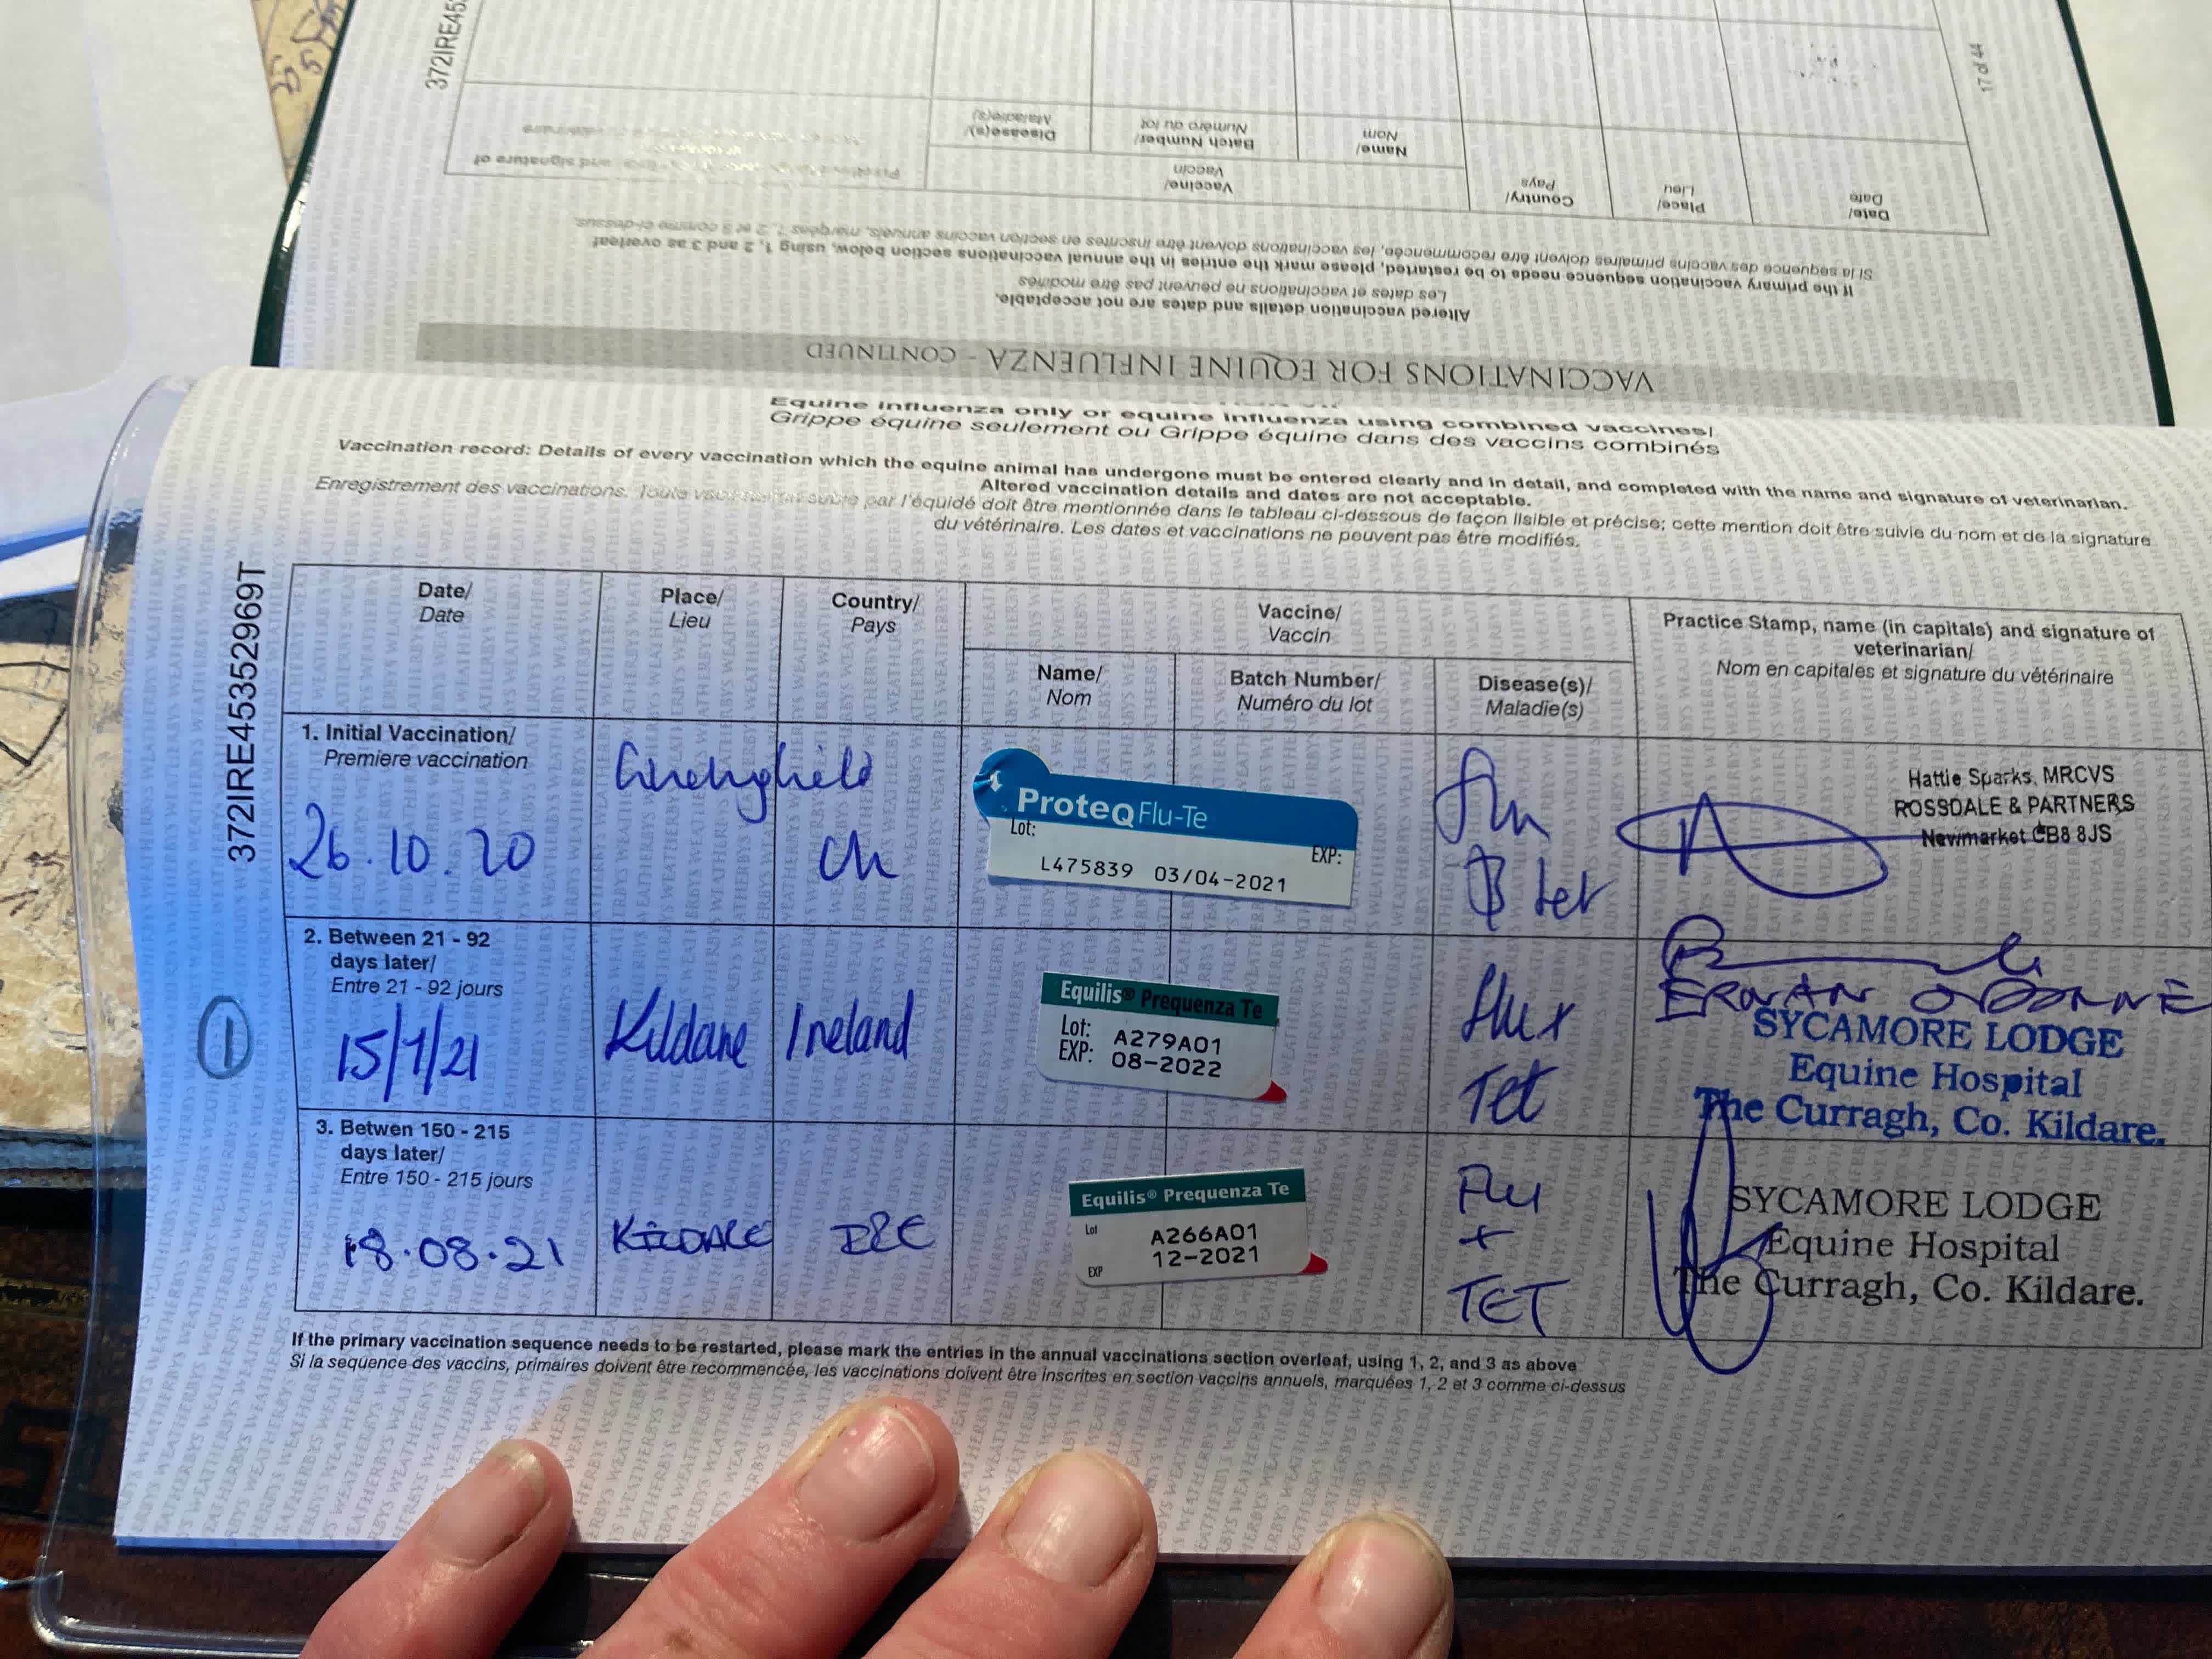 372IRE45
17 of 44
Date/
Date
Place/
Lieu
Country/
Pays
Vaccine/
Vaccin
Name/
Nom
Batch Number/
Numéro du lot
Disease(s)/
Maladie(s)
and signature of
If the primary vaccination sequence needs to be restarted, please mark the entries in the annual vaccinations section below, using 1, 2 and 3 as overleaf
Si la sequence des vaccins primaires doivent être recommencée, les vaccinations doivent être inscrites en section vaccins annuels, marqées 1, 2 et 3 comme ci-dessus.
Altered vaccination details and dates are not acceptable.
Les dates et vaccinations ne peuvent pas être modifiés
VACCINATIONS FOR EQUINE INFLUENZA - CONTINUED
Equine influenza only or equine influenza using combined vaccines/
Grippe équine seulement ou Grippe équine dans des vaccins combinés
Vaccination record: Details of every vaccination which the equine animal has undergone must be entered clearly and in detail, and completed with the name and signature of veterinarian.
Altered vaccination details and dates are not acceptable.
Enregistrement des vaccinations. Toute vaccination subie par l'équidé doit être mentionnée dans le tableau ci-dessous de façon lisible et précise; cette mention doit être suivie du nom et de la signature
du vétérinaire. Les dates et vaccinations ne peuvent pas être modifiés.
372IRE45352969T
Date/
Date
Place/
Lieu
Country/
Pays
Vaccine/
Vaccin
Name/
Nom
Batch Number/
Numéro du lot
Disease(s)/
Maladie(s)
Practice Stamp, name (in capitals) and signature of
veterinarian/
Nom en capitales et signature du vétérinaire
1. Initial Vaccination/
Premiere vaccination
26.10.20
ProteQ Flu-Te
Lot:
EXP:
L475839 03/04-2021
Flu
tet
Hattie Sparks, MRCVS
ROSSDALE & PARTNERS
Newmarket CB8 8JS
2. Between 21 - 92
days later/
Entre 21 - 92 jours
15/1/21
Kildare
Ireland
Equilis® Prequenza Te
Lot: A279A01
EXP: 08-2022
Flu x
Tet
SYCAMORE LODGE
Equine Hospital
The Curragh, Co. Kildare.
1
3. Betwen 150 - 215
days later/
Entre 150 - 215 jours
18.08.21
KILDARE
IRE
Equilis® Prequenza Te
Lot A266A01
EXP 12-2021
FLU
+
TET
SYCAMORE LODGE
Equine Hospital
The Curragh, Co. Kildare.
If the primary vaccination sequence needs to be restarted, please mark the entries in the annual vaccinations section overleaf, using 1, 2, and 3 as above
Si la sequence des vaccins, primaires doivent être recommencée, les vaccinations doivent être inscrites en section vaccins annuels, marquées 1, 2 et 3 comme ci-dessus